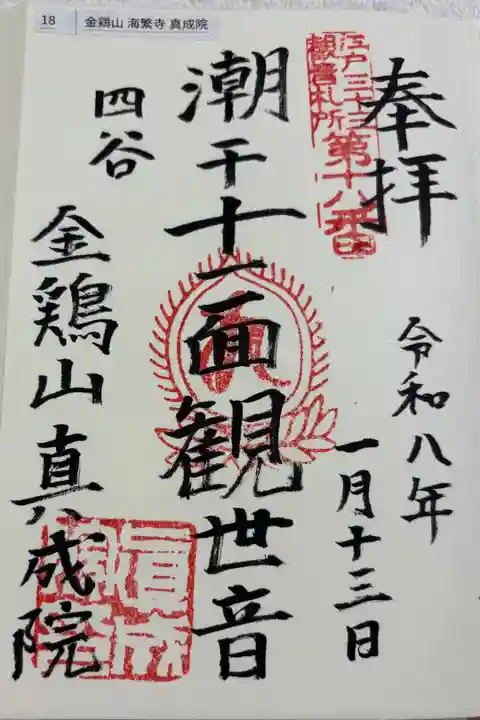 18 金鶏山 海繁寺 真成院
奉拝
江戸三十三
観音札所
第十八番
令和八年
一月十三日
潮干十一面観世音
四谷
金鶏山真成院